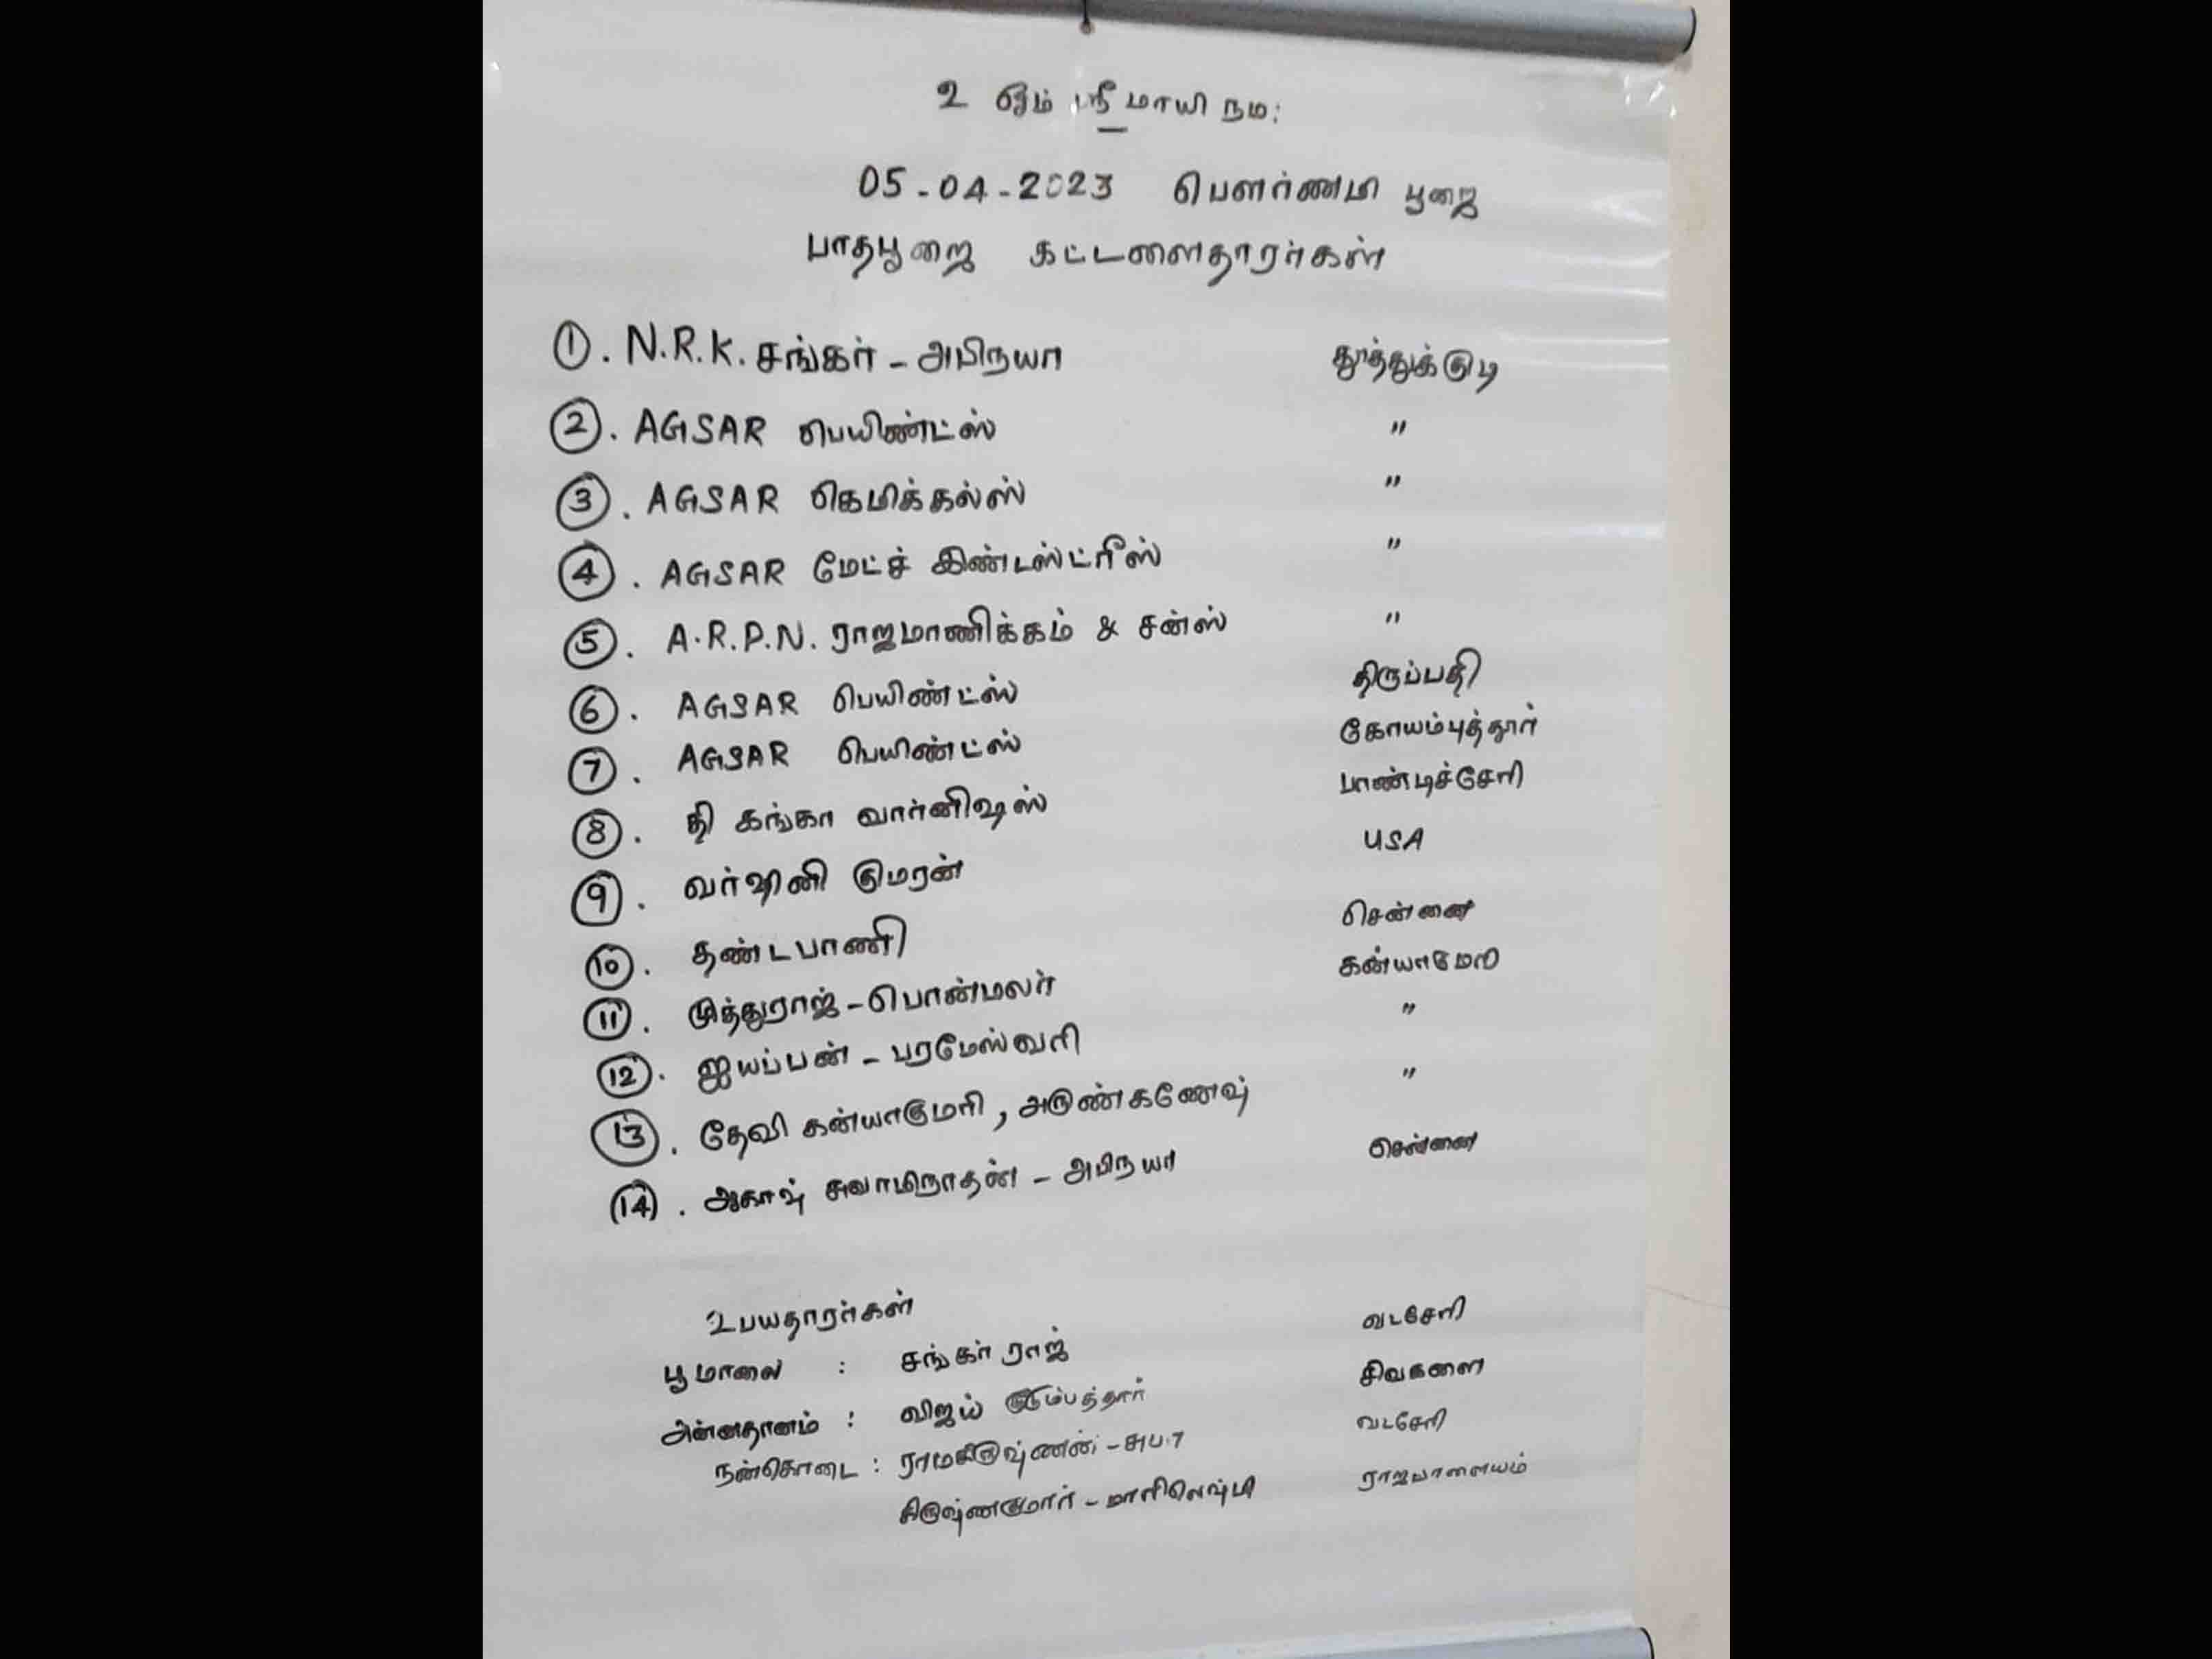 உ ஓம் ஸ்ரீ மாயி நம:
05-04-2023 பௌர்ணமி பூஜை
பாதபூஜை கட்டளைதாரர்கள்
1. N.R.K. சங்கர் - அபிநயா தூத்துக்குடி
2. AGSAR பெயிண்ட்ஸ் "
3. AGSAR கெமிக்கல்ஸ் "
4. AGSAR மேட்ச் இண்டஸ்ட்ரீஸ் "
5. A.R.P.N. ராஜமாணிக்கம் & சன்ஸ் "
6. AGSAR பெயிண்ட்ஸ் திருப்பதி
7. AGSAR பெயிண்ட்ஸ் கோயம்புத்தூர்
8. தி கங்கா வார்னிஷஸ் பாண்டிச்சேரி
9. வர்ஷினி குமரன் USA
10. தண்டபாணி சென்னை
11. முத்துராஜ் - பொன்மலர் கன்யாகுமரி
12. ஐயப்பன் - பரமேஸ்வரி "
13. தேவி கன்யாகுமரி, அருண்கணேஷ் "
14. ஆகாஷ் சுவாமிநாதன் - அபிநயா சென்னை
உபயதாரர்கள்
பூமாலை : சங்கர் ராஜ் வடசேரி
அன்னதானம் : விஜய் குடும்பத்தார் சிவகளை
நன்கொடை : ராமகிருஷ்ணன் - சுபா வடசேரி
கிருஷ்ணகுமார் - மாரிலெஷ்மி ராஜபாளையம்